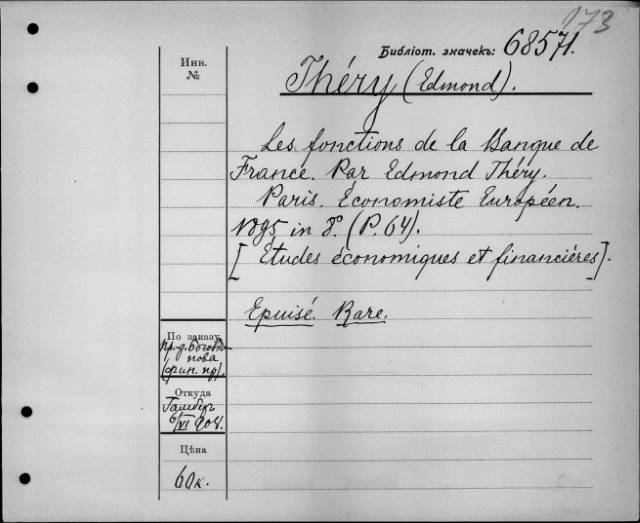 173
Библіот. значекъ: 68571.
Инв.
№
Théry (Edmond).
Les fonctions de la Banque de
France. Par Edmond Théry.
Paris. Économiste Européen.
1895 in 8º. (P. 64).
[Études économiques et financières].
Epuisé. Rare.
По заказу
пр.-д. Боголѣ-
пова
(фин. пр).
Откуда
6/VI 908.
Цѣна
60 к.